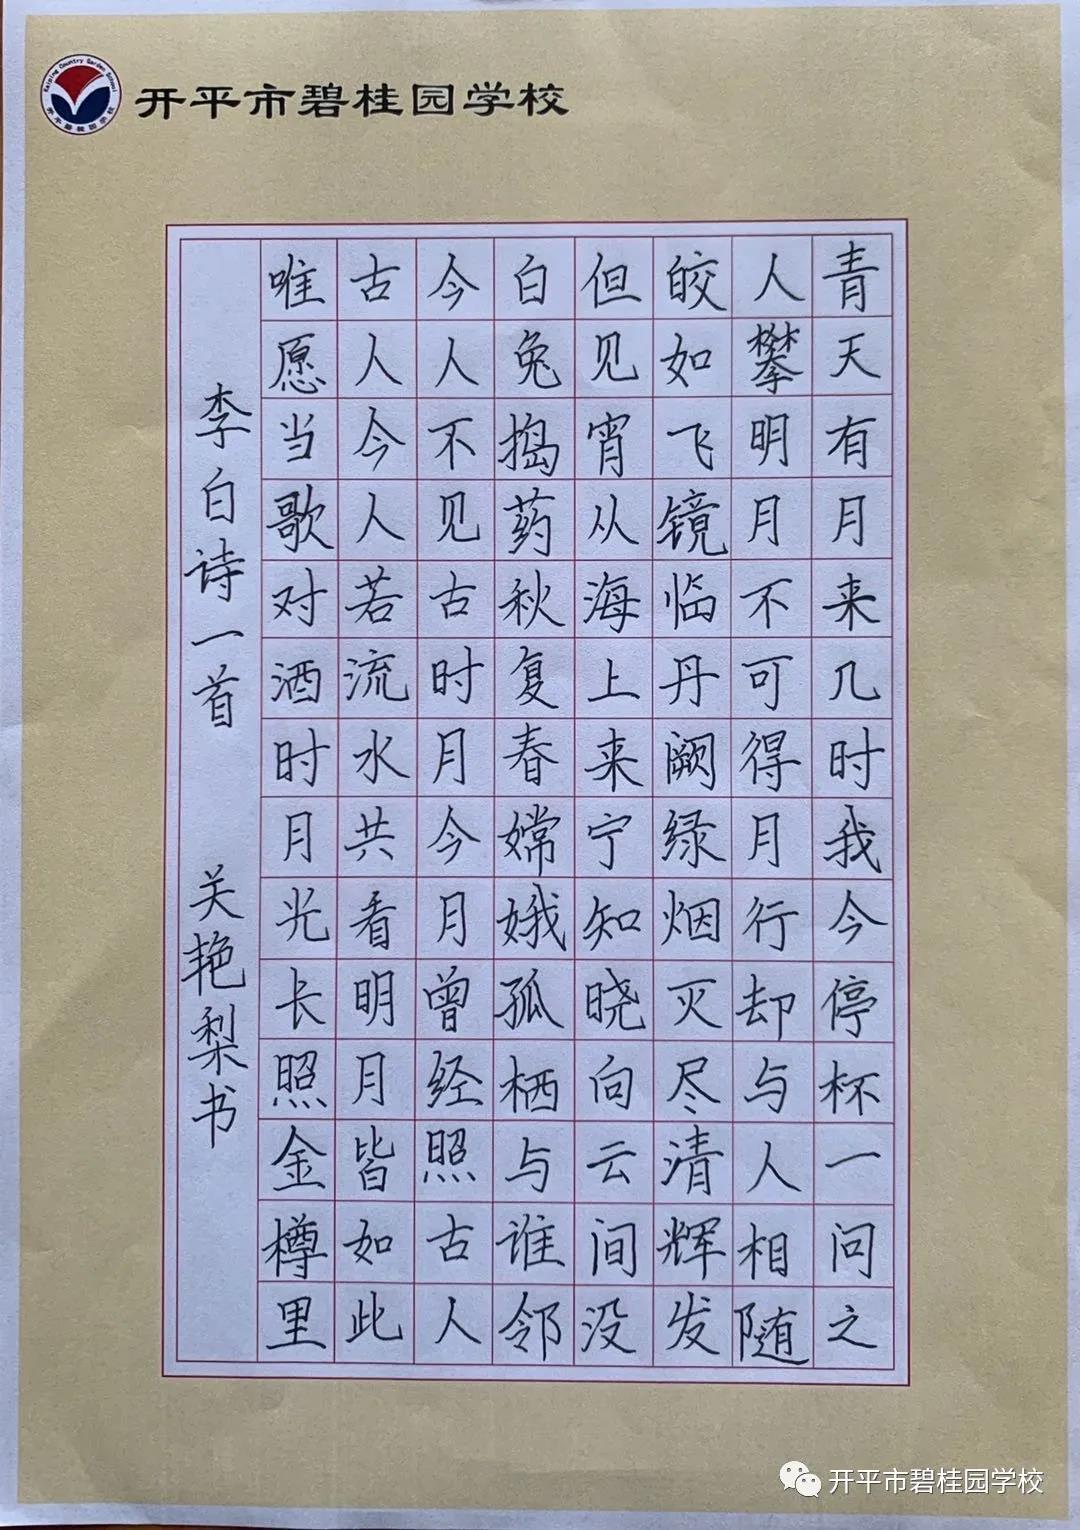 Kaiping Country Garden School
开平碧桂园学校
开平市碧桂园学校
青天有月来几时我今停杯一问之
人攀明月不可得月行却与人相随
皎如飞镜临丹阙绿烟灭尽清辉发
但见宵从海上来宁知晓向云间没
白兔捣药秋复春嫦娥孤栖与谁邻
今人不见古时月今月曾经照古人
古人今人若流水共看明月皆如此
唯愿当歌对酒时月光长照金樽里
李白诗一首 关艳梨书
开平市碧桂园学校